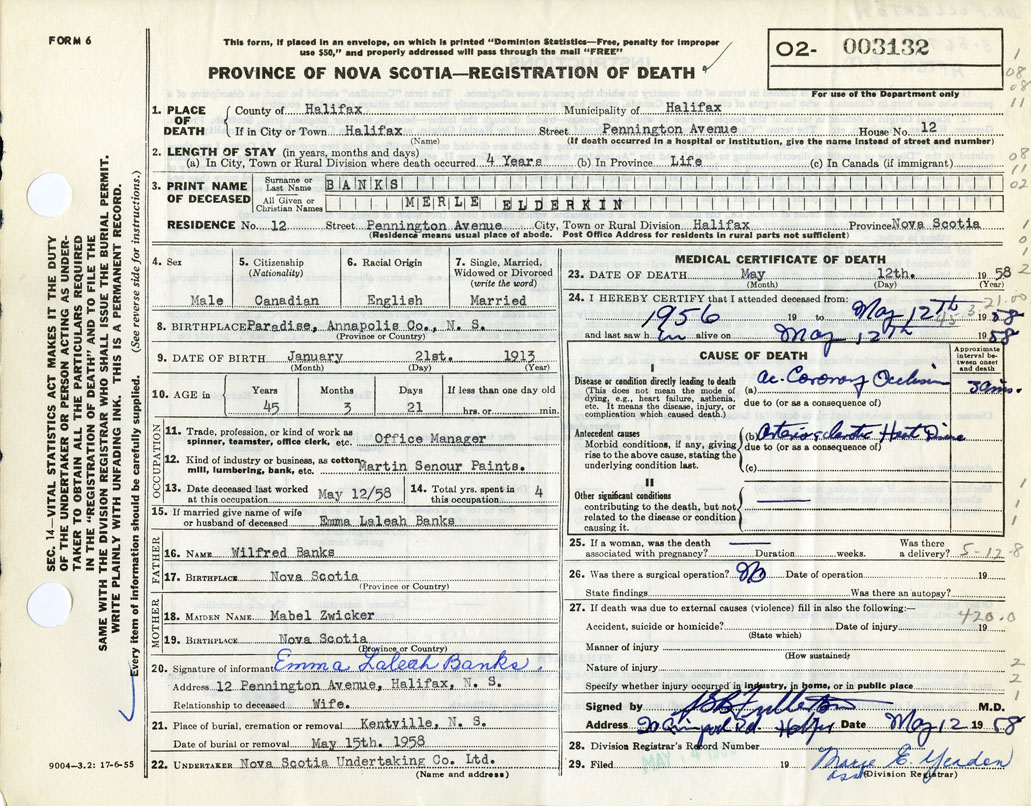 FORM 6
This form, if placed in an envelope, on which is printed "Dominion Statistics—Free, penalty for improper
use $50," and properly addressed will pass through the mail "FREE"
PROVINCE OF NOVA SCOTIA—REGISTRATION OF DEATH
O2- 003132
For use of the Department only
SEC. 14—VITAL STATISTICS ACT MAKES IT THE DUTY
OF THE UNDERTAKER OR PERSON ACTING AS UNDER-
TAKER TO OBTAIN ALL THE PARTICULARS REQUIRED
IN THE "REGISTRATION OF DEATH" AND TO FILE THE
SAME WITH THE DIVISION REGISTRAR WHO SHALL ISSUE THE BURIAL PERMIT.
WRITE PLAINLY WITH UNFADING INK. THIS IS A PERMANENT RECORD.
Every item of information should be carefully supplied. (See reverse side for instructions.)
1. PLACE OF DEATH
County of Halifax Municipality of Halifax
If in City or Town Halifax Street Pennington Avenue House No. 12
(Name) (If death occurred in a hospital or institution, give the name instead of street and number)
2. LENGTH OF STAY (in years, months and days)
(a) In City, Town or Rural Division where death occurred 4 Years (b) In Province Life (c) In Canada (if immigrant)
3. PRINT NAME OF DECEASED
Surname or Last Name BANKS
All Given or Christian Names MERLE ELDERKIN
RESIDENCE No. 12 Street Pennington Avenue City, Town or Rural Division Halifax Province Nova Scotia
(Residence means usual place of abode. Post Office Address for residents in rural parts not sufficient)
4. Sex
Male
5. Citizenship
(Nationality)
Canadian
6. Racial Origin
English
7. Single, Married,
Widowed or Divorced
(write the word)
Married
8. BIRTHPLACE Paradise, Annapolis Co., N. S.
(Province or Country)
9. DATE OF BIRTH January 21st. 1913
(Month) (Day) (Year)
10. AGE in
Years Months Days If less than one day old
45 3 21 hrs. or min.
OCCUPATION
11. Trade, profession, or kind of work as
spinner, teamster, office clerk, etc. Office Manager
12. Kind of industry or business, as cotton-
mill, lumbering, bank, etc. Martin Senour Paints.
13. Date deceased last worked
at this occupation May 12/58
14. Total yrs. spent in
this occupation 4
15. If married give name of wife
or husband of deceased Emma Laleah Banks
FATHER
16. NAME Wilfred Banks
17. BIRTHPLACE Nova Scotia
(Province or Country)
MOTHER
18. MAIDEN NAME Mabel Zwicker
19. BIRTHPLACE Nova Scotia
(Province or Country)
20. Signature of informant Emma Laleah Banks.
Address 12 Pennington Avenue, Halifax, N. S.
Relationship to deceased Wife.
21. Place of burial, cremation or removal Kentville, N. S.
Date of burial or removal May 15th. 1958
22. UNDERTAKER Nova Scotia Undertaking Co. Ltd.
(Name and address)
9004—3.2: 17-6-55
MEDICAL CERTIFICATE OF DEATH
23. DATE OF DEATH May 12th. 1958
(Month) (Day)
24. I HEREBY CERTIFY that I attended deceased from:
1956 19 to May 12th 1958
and last saw him alive on May 12th 1958
CAUSE OF DEATH
Approximate
interval be-
tween onset
and death
I
Disease or condition directly leading to death
(This does not mean the mode of
dying, e.g., heart failure, asthenia,
etc. It means the disease, injury, or
complication which caused death.)
(a) Ac. Coronary Occlusion
due to (or as a consequence of)
Antecedent causes
Morbid conditions, if any, giving
rise to the above cause, stating the
underlying condition last.
(b) Arteriosclerotic Heart Disease
due to (or as a consequence of)
(c)
II
Other significant conditions
contributing to the death, but not
related to the disease or condition
causing it.
25. If a woman, was the death Was there
associated with pregnancy? Duration weeks. a delivery?
5-17-8
26. Was there a surgical operation? No Date of operation 19
State findings Was there an autopsy?
27. If death was due to external causes (violence) fill in also the following:—
420.0
Accident, suicide or homicide? Date of injury 19
(State which)
Manner of injury
(How sustained)
Nature of injury
Specify whether injury occurred in industry, in home, or in public place
Signed by Fullerton M.D.
Address Rd. Date May 12 1958
28. Division Registrar's Record Number
29. Filed 19 Marie E.
(Division Registrar)